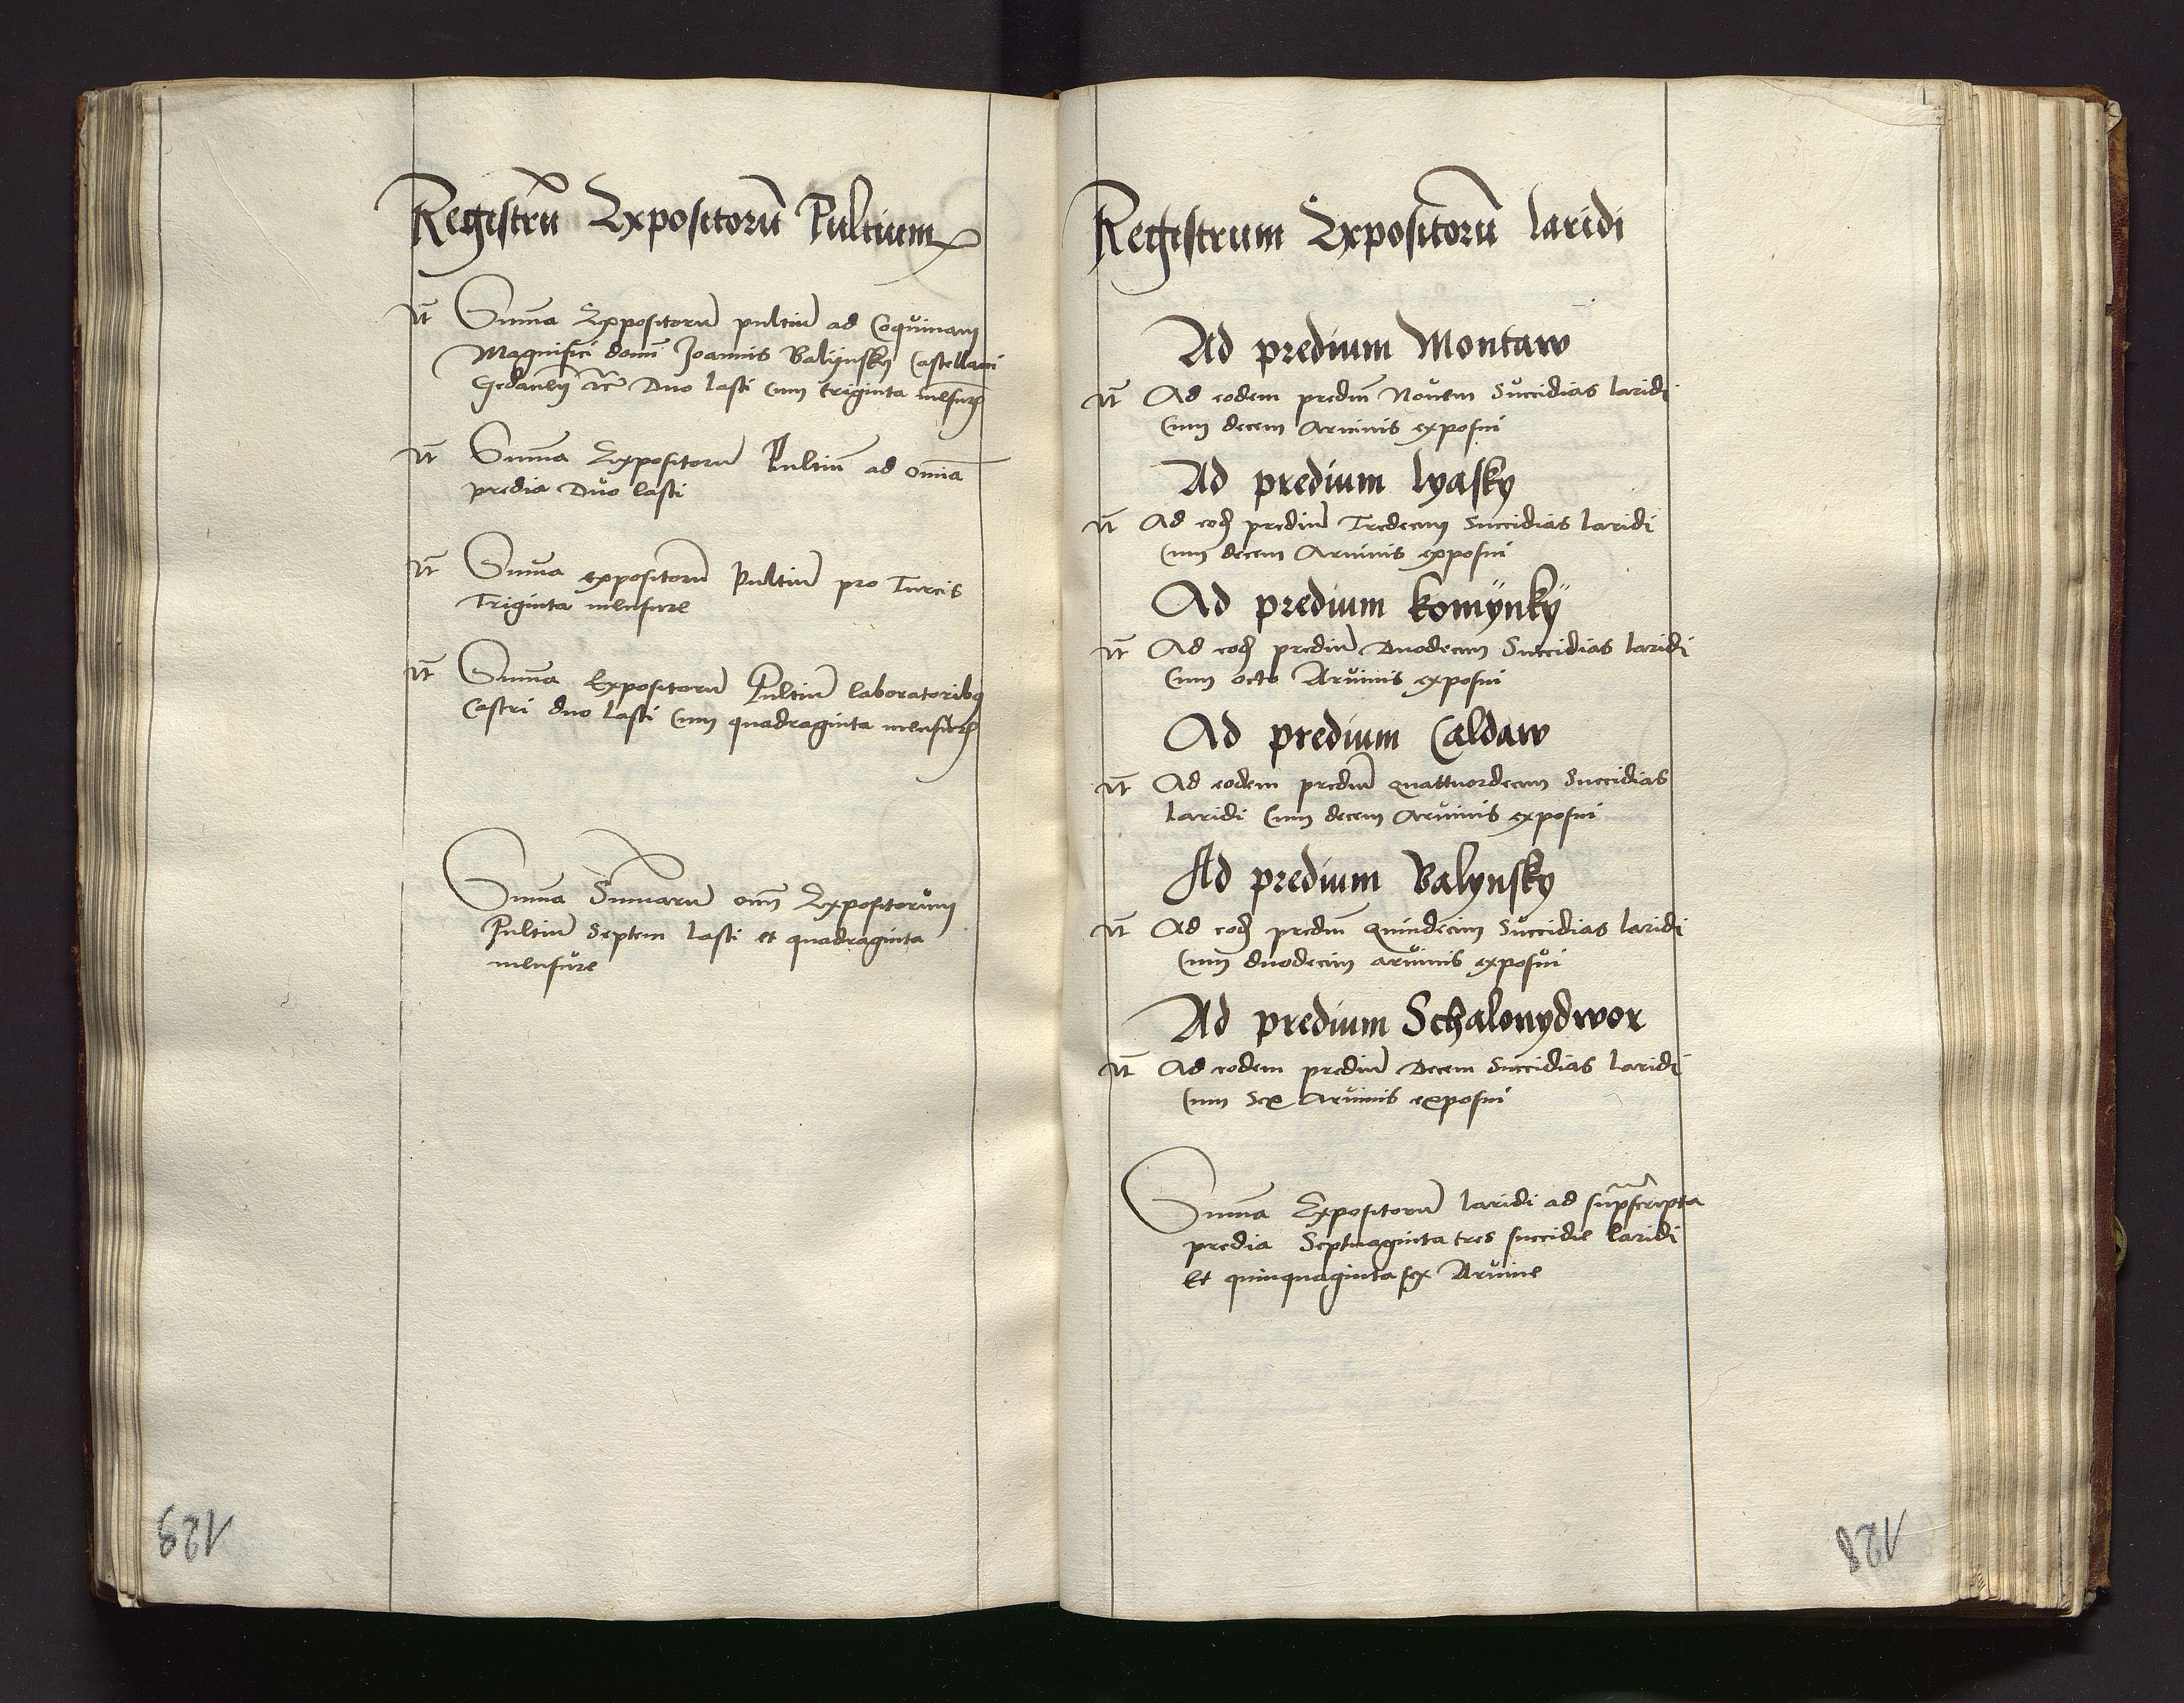 Registrū Expositorū Pultium
Itē Suma Expositorū pultiū ad Coquinam
Magnifici domī Joannis Balijnsky Castellani
Gedanēn̄ ac̄ Duo lasti Cum triginta mēsur̄
Itē Suma Expositorū Pultiū ad omīa
predia Duo lasti
Itē Suma expositorū Pultiū pro Turcis
Triginta mensure
Itē Suma Expositorū Pultiū laboratoribꝫ
Castri duo lasti Cum quadraginta mensur̄
Suma Sūmarū omī Expositorum
Pultiū Septem lasti et quadraginta
mensure
129
Registrum Expositorū laridi
Ad predium Montaw
Itē Ad eodem prediū Nouem Succidias laridi
Cum decem Aruinis exposui
Ad predium lyasky
Itē Ad eod̄ prediū Tredecim Succidias laridi
Cum decem Aruinis exposui
Ad predium komÿnkÿ
Itē Ad eod̄ prediū Duodecim Succidias laridi
Cum octo Aruinis exposui
Ad predium Caldaw
Itē Ad eodem prediū quattuordecim Succidias
laridi Cum decem Aruinis exposui
Ad predium Balynsky
Itē Ad eod̄ prediū quindecim Succidias laridi
Cum duodecim aruinis exposui
Ad predium Schalonydwor
Itē Ad eodem prediū Decem Succidias laridi
Cum Sex Aruinis exposui
Suma Expositorū laridi ad sup̄scripta
predia Septuaginta tres succidie laridi
Et quinquaginta sex Aruine
128